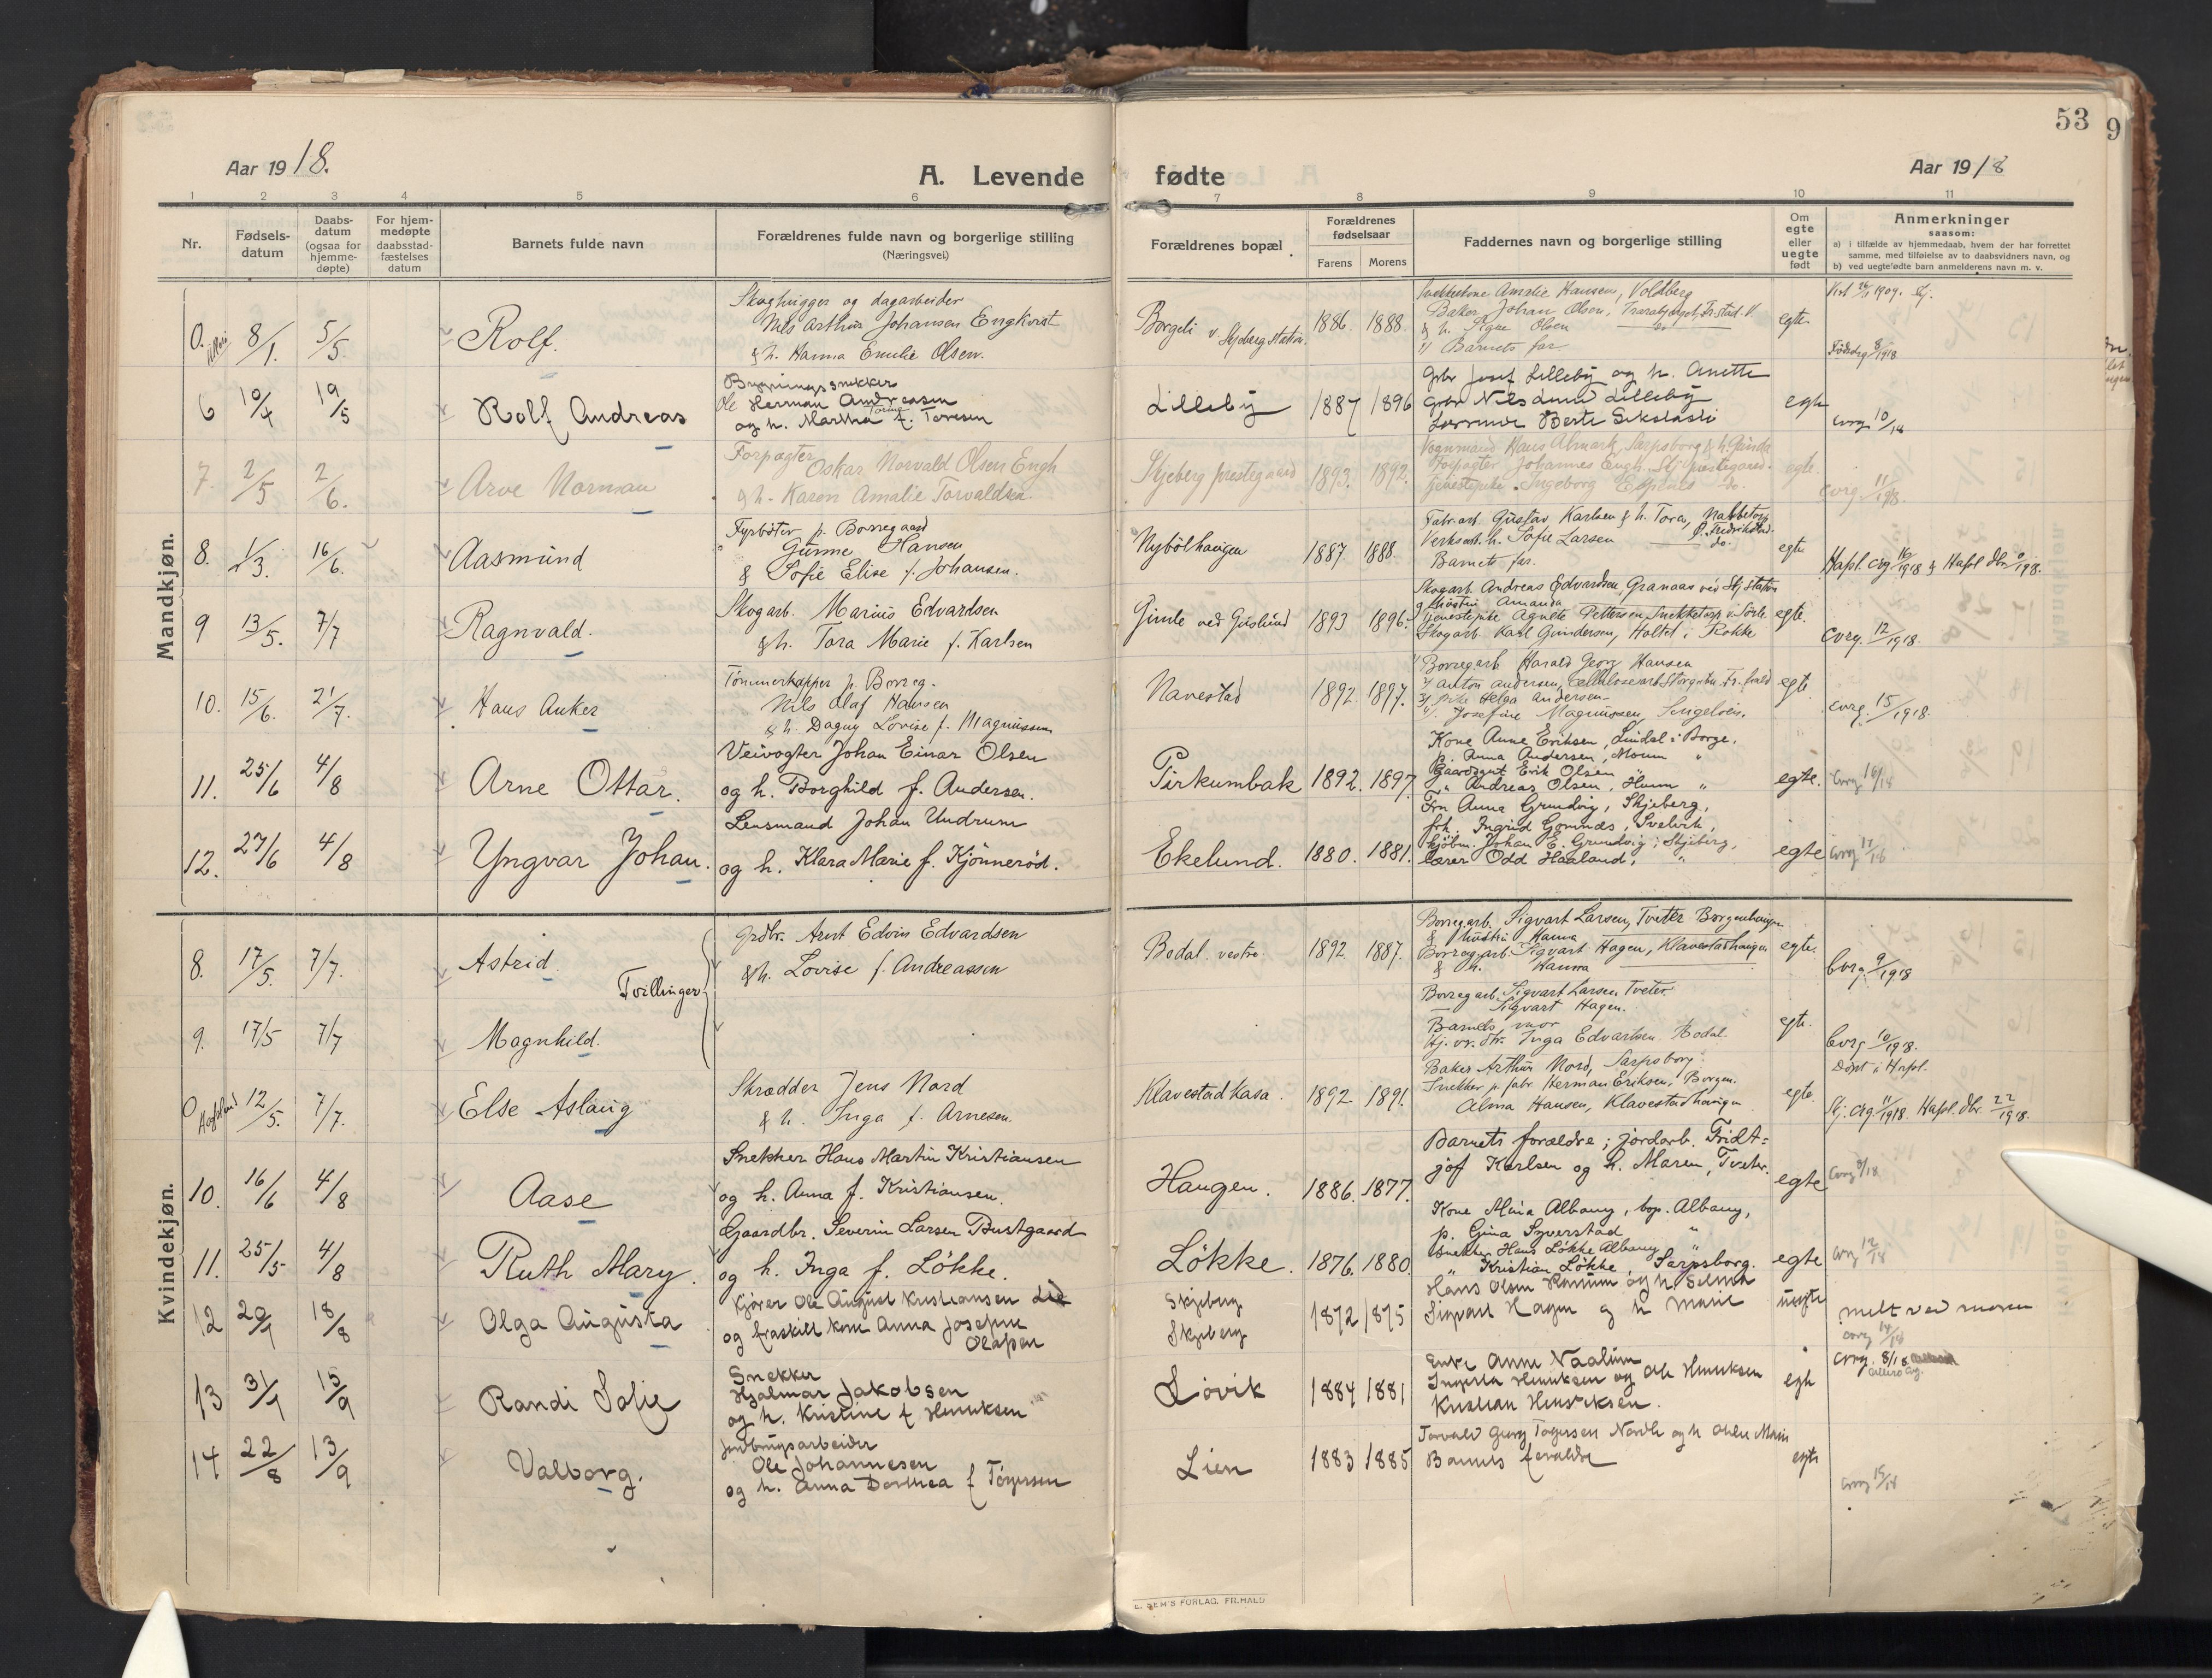 53
9
Aar 1918.
A. Levende
fødte
Aar 1918
1 2 3 4 5 6 7 8 9 10 11
Nr.
Fødsels-
datum
Daabs-
datum
(ogsaa for
hjemme-
døpte)
For hjem-
medøpte
daabsstad-
fæstelses
datum
Barnets fulde navn
Forældrenes fulde navn og borgerlige stilling
(Næringsvei)
Forældrenes bopæl
Forældrenes
fødselsaar
Farens
Morens
Faddernes navn og borgerlige stilling
Om
egte
eller
uegte
født
Anmerkninger
saasom:
a) i tilfælde av hjemmedaab, hvem der har forrettet
samme, med tilføielse av to daabsvidners navn, og
b) ved uegte fødte barn anmelderens navn m. v.
Mandkjøn.
0. 8/1. 5/5 Rolf.
Skoghugger og dagarbeider
Nils Arthur Johansen Engkvist
& h. Hanna Emilie Olsen.
Borgeli v. Skjeberg Station. 1886. 1888.
Amalie Hansen, Voldberg
Baker Johan Olsen, Fr.stad. V.
& h. Signe Olsen
Barnets far
egte
Fødselsrg 8/1918
6 10/4 19/5 Rolf Andreas
Bygningssnekker
Ole Herman Andreasen
og h. Martha f. Toresen
Lilleby 1887 1896
Grbr Josef Lilleby og h. Anette
Grbr Nils Lilleby
Berte
egte
cvrg 10/18
7. 2/5 2/6. Arve Norman
Forpagter
Oskar Norvald Olsen Engh
& h. Karen Amalie Torvaldsen
Skjeberg prestegaard 1893. 1892.
Vognmand Hans Almark, Sarpsborg & h. Gunda
Forpagter Johannes Engh, Skj. prestegaard.
Tjenestepike Ingeborg Espenes do.
egte.
cvrg 11/1918.
8. 1/3. 16/6. Aasmund
Fyrbøter p. Borregaard
Gunne Hansen
& Sofie Elise f. Johansen.
Nybølhaugen 1887. 1888
Fabr.arb. Gustav Karlsen & h. Tora, Nabbetorp
p. Fredrikstad.
h. Sofie Larsen do.
Barnets far.
egte
Hafsl. cvrg 16/1918 & Hafsl. dbr. 9/1918.
9 13/5. 7/7 Ragnvald.
Skogarb. Marius Edvardsen
& h. Tora Marie f. Karlsen
Gimle ved Guslund 1893 1896.
Skogarb. Andreas Edvardsen, Granaas ved Skj. station
& hustru Amanda
Tjenestepike Agnete Pettersen, Snekketorp
Skogarb. Karl Gundersen, Holtet i Rokke
egte.
cvrg. 12/1918.
10. 15/6. 21/7. Hans Anker
Tømmerkapper p. Borreg.
Nils Olaf Hansen
& h. Dagny Lovise f. Magnussen
Navestad 1892. 1897.
Borregarb. Harald Georg Hansen
Anton Andersen, Cellulosearb.
Pike Helga Andersen
Josefine Magnussen,
egte.
cvrg. 15/1918.
11. 25/6 4/8 Arne Ottar.
Veivogter Johan Einar Olsen
og h. Borghild f. Andersen.
Pirkumbak 1892. 1897
Kone Anne Eriksen, Lindal i Borge.
p. Anna Andersen, Moum "
Gaardsgut Erik Olsen "
" Andreas Olsen, Houm "
egte.
cvrg 16/18
12. 27/6 4/8 Yngvar Johan.
Lensmand Johan Undrum
og h. Klara Marie f. Kjønnerød.
Ekelund. 1880. 1881.
Fru Anna Grundvig, Skjeberg,
frk. Ingrid Gomnæs, Svelvik,
kjøbm. Johan E. Grundvig, Skjeberg,
lærer Odd Haaland, "
egte
cvrg 17/18
Kvindekjøn.
8. 17/5. 7/7. Astrid
Tvillinger
Grdbr. Arnt Edvin Edvardsen
& h. Lovise f. Andreassen
Bodal vestre. 1892. 1887.
Borregarb. Sigvart Larsen, Tveter Borgenhaugen
& hustru Hanna
Borregarb. Sigvart Hagen, Klavestadhaugen
& h. Hanna
egte.
Cvrg. 9/1918
9. 17/5 7/7 Magnhild.
Borregarb. Sigvart Larsen Tveter
Sigvart Hagen.
Barnets mor
Inga Edvartsen Bodal.
egte.
Cvrg 10/1918.
12/5. 7/7. Else Aslaug
Skrædder Jens Nord
& h. Inga f. Arnesen.
Klavestad Kasa. 1892. 1891.
Baker Arthur Nord, Sarpsborg
Snekker p. fabr. Herman Eriksen, Borgen.
Alma Hansen, Klavestadhaugen
egte.
Døpt i Hafsl.
Skj. cvrg. 11/1918. Hafsl. dbr. 22/1918.
10. 16/6 4/8 Aase
Snekker Hans Martin Kristiansen
og h. Anna f. Kristiansen.
Haugen. 1886. 1877.
Barnets forældre; jordarb. Fridt=
jof Karlsen og h. Maren, Tveter.
egte
11. 25/5 4/8 Ruth Mary.
Gaardbr. Severin Larsen Bustgaard
og h. Inga f. Løkke.
Løkke. 1876. 1880.
Kone Mina Albany, bop. Albany,
p. Gina Syverstad "
Snekker Hans Løkke Albany "
" Kristian Løkke, Sarpsborg.
egte
cvrg 12/18
12 29/7 18/8 Olga Augusta
Kjører Ole August Kristiansen
og fraskilt kone Anna Josefine
Olafsen
Skjeberg
Skjeberg
1872 1875
Hans Olsen og h. Selma
Sigvart Hagen og h Marie
uegte
melt ved moren
cvrg 14/18
13 31/7 15/9 Randi Sofie
Snekker
Hjalmar Jakobsen
og h. Kristine f Henriksen
Løvik 1884 1881
Enke Anne Naalum
Ingerta Henriksen og Ole Henriksen
Kristian Henriksen.
egte
cvrg. 8/18
14 22/8 13/9 Valborg.
Ole Johannesen
og h. Anna Dorthea f Torgersen
Lien 1883 1885
Torvald Georg Torgersen og h
Barnets forældre
egte
cvrg 15/18
E. SEM'S FORLAG, FR.HALD